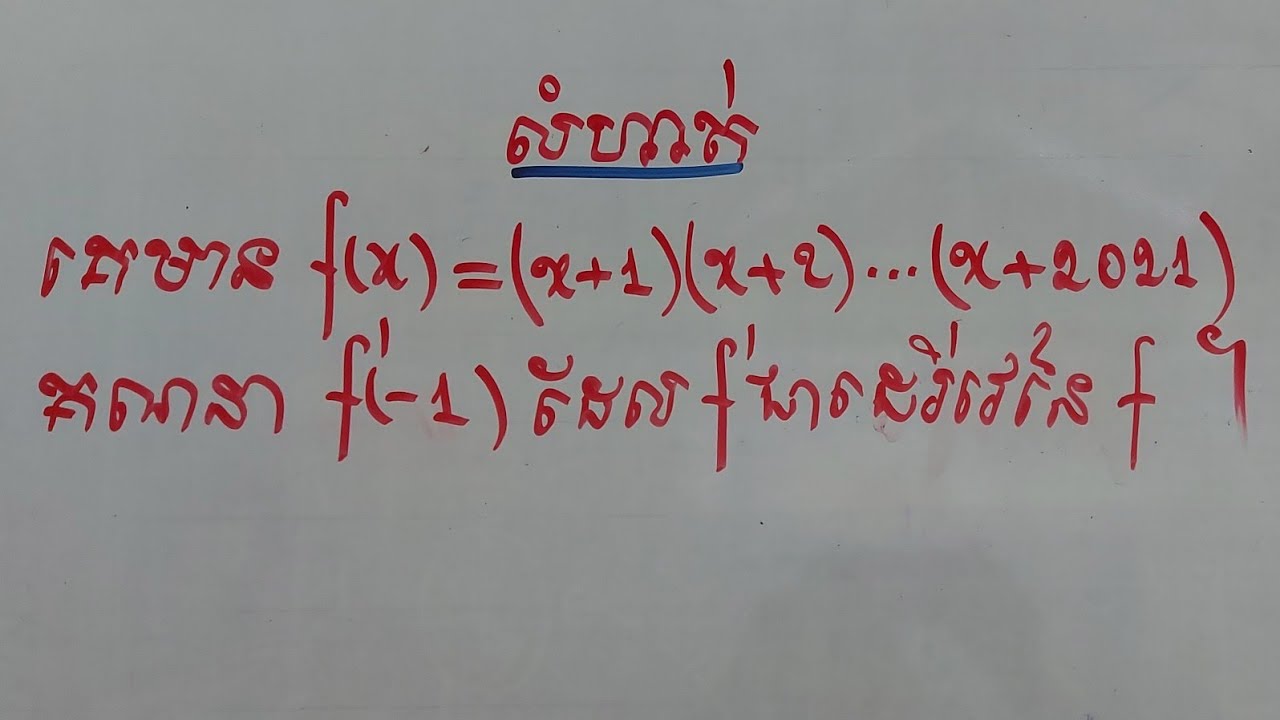 លំហាត់
គេមាន f(x) = (x+1)(x+2)...(x+2021)
គណនា f'(-1) ដែល f' ជាដេរីវេនៃ f ។